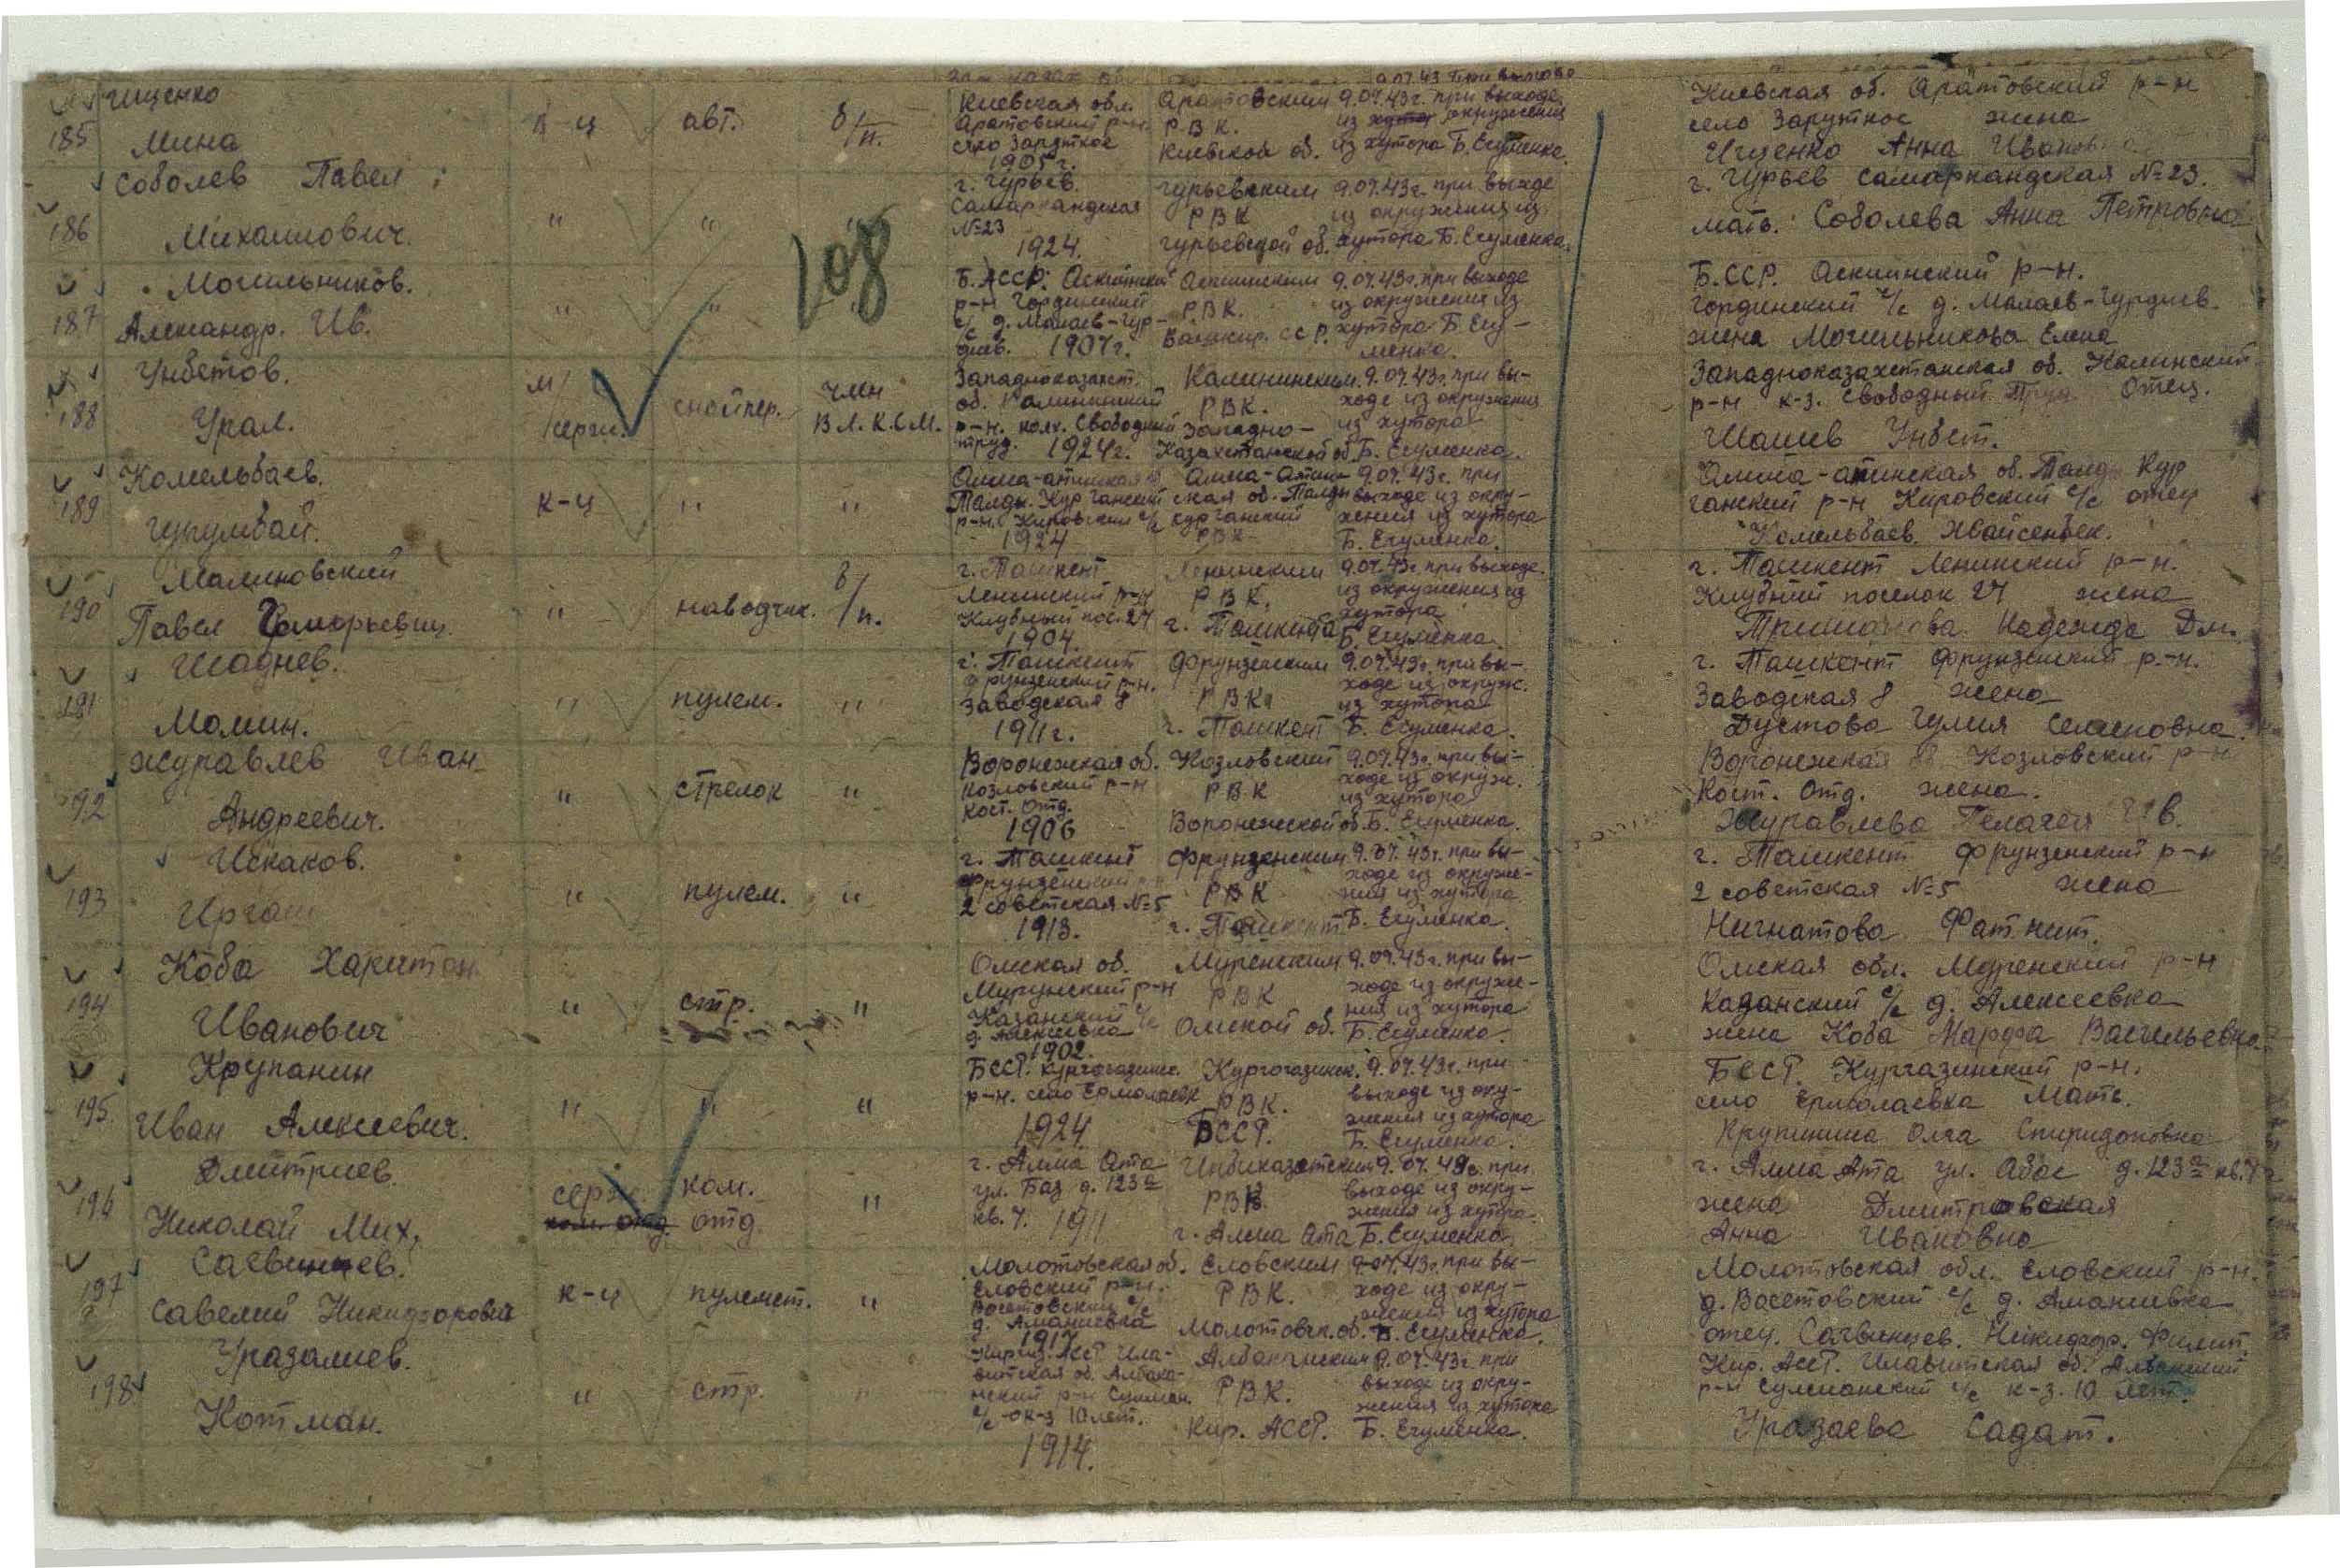 Ищенко
185 Мина
к-ц авт. б/п.
Киевская обл. Аратовский р-н. село Заруткое 1905 г.
Аратовским РВК. Киевской об.
9.07.43 г. при выходе из окружения из хутора Б. Егуменка.
Киевская об. Аратовский р-н
село Заруткое жена
Ищенко Анна Ивановна
Соболев Павел
186 Михаилович.
" " "
г. Гурьев. Самаркандская №23 1924.
Гурьевским РВК Гурьевской об.
9.07.43 г. при выходе из окружения из хутора Б. Егуменка.
г. Гурьев Самаркандская №23.
мать: Соболева Анна Петровна
108
Могильников.
187 Александр. Ив.
" " "
Б. АССР. Аскинский р-н Гординский с/с д. Малаев-Гурдиев. 1907 г.
Аскинским РВК. Башкир. ССР.
9.07.43 г. при выходе из окружения из хутора Б. Егуменка.
Б.ССР. Аскинский р-н.
Гординский с/с д. Малаев-Гурдиев.
жена Могильникова Елена
Унбетов.
188 Урал.
м/серж. снайпер. член В.Л.К.С.М.
Западноказахст. об. Калининский р-н. колх. Свободный труд. 1924 г.
Калининским РВК. Западно-Казахстанской об.
9.07.43 г. при выходе из окружения из хутора Б. Егуменка.
Западноказахстанская об. Калинский
р-н к-з. Свободный Труд Отец.
Шашев Унбет.
Комельбаев.
189
к-ц " "
Алма-атинская Талды. Курганский р-н. Кировский с/с 1924
Алма-Атинская об. Талды Курганский РВК
9.07.43 г. при выходе из окружения из хутора Б. Егуменка.
Алма-атинская об. Талды Кур
ганский р-н Кировский с/с отец
Комельбаев. Жвайсенбек.
Малиновский
190 Павел Григорьевич.
" наводчик. б/п.
г. Ташкент Ленинский р-н Клубный пос. 27 1904.
Ленинским РВК. г. Ташкента
9.07.43 г. при выходе из окружения из хутора Б. Егуменка.
г. Ташкент Ленинский р-н.
Клубный поселок 27 жена
Надежда Дм.
Шаднев.
191 Момин.
" пулем. "
г. Ташкент Фрунзенский р-н. Заводская 8 1911 г.
Фрунзенским РВК. г. Ташкент
9.07.43 г. при выходе из окруж. из хутора Б. Егуменка.
г. Ташкент Фрунзенский р-н.
Заводская 8 жена
Дустова Гулия Семеновна.
Журавлев Иван
192 Андреевич.
" стрелок "
Воронежская об. Козловский р-н Кост. Отд. 1906
Козловский РВК Воронежской об.
9.07.43 г. при выходе из окруж. из хутора Б. Егуменка.
Воронежская об Козловский р-н
Кост. Отд. жена.
Журавлева Пелагея Ив.
Искаков.
193 Иргаш
" пулем. "
г. Ташкент Фрунзенский 2 советская №5 1913.
Фрунзенским РВК г. Ташкент
9.07.43 г. при выходе из окружения из хутора Б. Егуменка.
г. Ташкент Фрунзенский р-н
2 советская №5 жена
Нигматова Фатнит.
Коба Харитон
194 Иванович
" стр. "
Омская об. Муружский р-н Казанский с/с д. Алексеевка 1902.
Муренским РВК Омской об.
9.07.43 г. при выходе из окружения из хутора Б. Егуменка.
Омская обл. Муренский р-н
Казанский с/с д. Алексеевка
жена Коба Марфа Васильевна
Крупанин
195. Иван Алексеевич.
" " "
БССР. Кургогазинс. р-н. село Ермолаевк 1924
Кургогазинск. РВК. БССР.
9.07.43 г. при выходе из окружения из хутора Б. Егуменка.
БССР. Кургазинский р-н.
село Ермолаевка Мать.
Крупинина Олга Спиридоновна
Дмитриев.
196 Николай Мих.
серж. ком. отд. "
г. Алма Ата ул. Баз д. 123а кв. 7. 1911
РВК г. Алма Ата
9.07.43 г. при выходе из окружения из хутора. Б. Егуменка
г. Алма Ата ул. Абос д. 123а кв. 7
жена Дмитровская
Анна Ивановна
Сагвинцев.
197 Савелий Никифорович
к-ц пулемет. "
Молотовская об. Еловский р-н. Васетовский с/с д. Аманиевка 1917
Еловским РВК. Молотовск. об.
9.07.43 г. при выходе из окружения из хутора Б. Егуменка.
Молотовская обл. Еловский р-н.
д. Васетовский с/с д. Аманиевка
отец. Сагвинцев. Никифор. Филип.
Уразалиев.
198 Котман.
" стр. "
р-н с/с к-з 10 лет. 1914.
Албаканским РВК. Кир. АССР.
9.07.43 г. при выходе из окружения из хутора Б. Егуменка.
Кир. АССР.
р-н Сулманский с/с к-з. 10 лет.
Уразаева Садат.